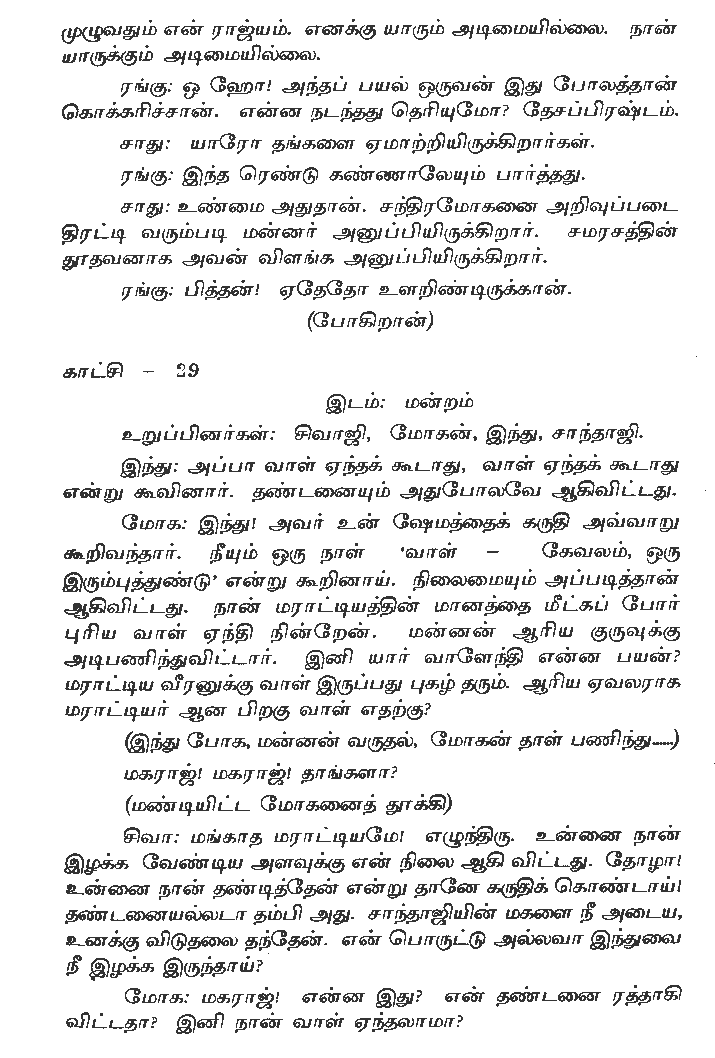 முழுவதும் என் ராஜ்யம். எனக்கு யாரும் அடிமையில்லை. நான்
யாருக்கும் அடிமையில்லை.
ரங்கு: ஒ ஹோ! அந்தப் பயல் ஒருவன் இது போலத்தான்
கொக்கரிச்சான். என்ன நடந்தது தெரியுமோ? தேசப்பிரஷ்டம்.
சாது: யாரோ தங்களை ஏமாற்றியிருக்கிறார்கள்.
ரங்கு: இந்த ரெண்டு கண்ணாலேயும் பார்த்தது.
சாது: உண்மை அதுதான். சந்திரமோகனை அறிவுப்படை
திரட்டி வரும்படி மன்னர் அனுப்பியிருக்கிறார். சமரசத்தின்
தூதவனாக அவன் விளங்க அனுப்பியிருக்கிறார்.
ரங்கு: பித்தன்! ஏதேதோ உளறிண்டிருக்கான்.
(போகிறான்)
காட்சி – 29
இடம்: மன்றம்
உறுப்பினர்கள்: சிவாஜி, மோகன், இந்து, சாந்தாஜி.
இந்து: அப்பா வாள் ஏந்தக் கூடாது, வாள் ஏந்தக் கூடாது
என்று கூவினார். தண்டனையும் அதுபோலவே ஆகிவிட்டது.
மோக: இந்து! அவர் உன் ஷேமத்தைக் கருதி அவ்வாறு
கூறிவந்தார். நீயும் ஒரு நாள் ‘வாள் – கேவலம், ஒரு
இரும்புத்துண்டு’ என்று கூறினாய். நிலைமையும் அப்படித்தான்
ஆகிவிட்டது. நான் மராட்டியத்தின் மானத்தை மீட்கப் போர்
புரிய வாள் ஏந்தி நின்றேன். மன்னன் ஆரிய குருவுக்கு
அடிபணிந்துவிட்டார். இனி யார் வாளேந்தி என்ன பயன்?
மராட்டிய வீரனுக்கு வாள் இருப்பது புகழ் தரும். ஆரிய ஏவலராக
மராட்டியர் ஆன பிறகு வாள் எதற்கு?
(இந்து போக, மன்னன் வருதல், மோகன் தாள் பணிந்து......)
மகராஜ்! மகராஜ்! தாங்களா?
(மண்டியிட்ட மோகனைத் தூக்கி)
சிவா: மங்காத மராட்டியமே! எழுந்திரு. உன்னை நான்
இழக்க வேண்டிய அளவுக்கு என் நிலை ஆகி விட்டது. தோழா!
உன்னை நான் தண்டித்தேன் என்று தானே கருதிக் கொண்டாய்!
தண்டனையல்லடா தம்பி அது. சாந்தாஜியின் மகளை நீ அடைய,
உனக்கு விடுதலை தந்தேன். என் பொருட்டு அல்லவா இந்துவை
நீ இழக்க இருந்தாய்?
மோக: மகராஜ்! என்ன இது? என் தண்டனை ரத்தாகி
விட்டதா? இனி நான் வாள் ஏந்தலாமா?